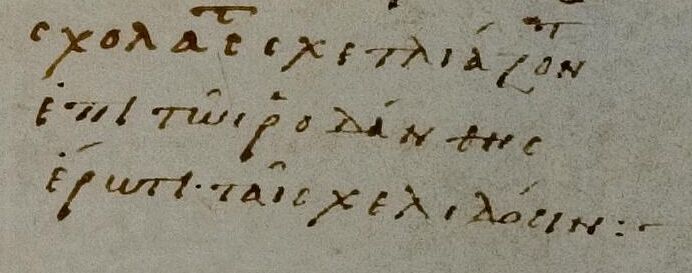 σχολαστ σχετλιάζοντ
ἐπὶ τῶι ῥοδάνθης
ἔρωτι· ταῖς χελιδόσιν:-